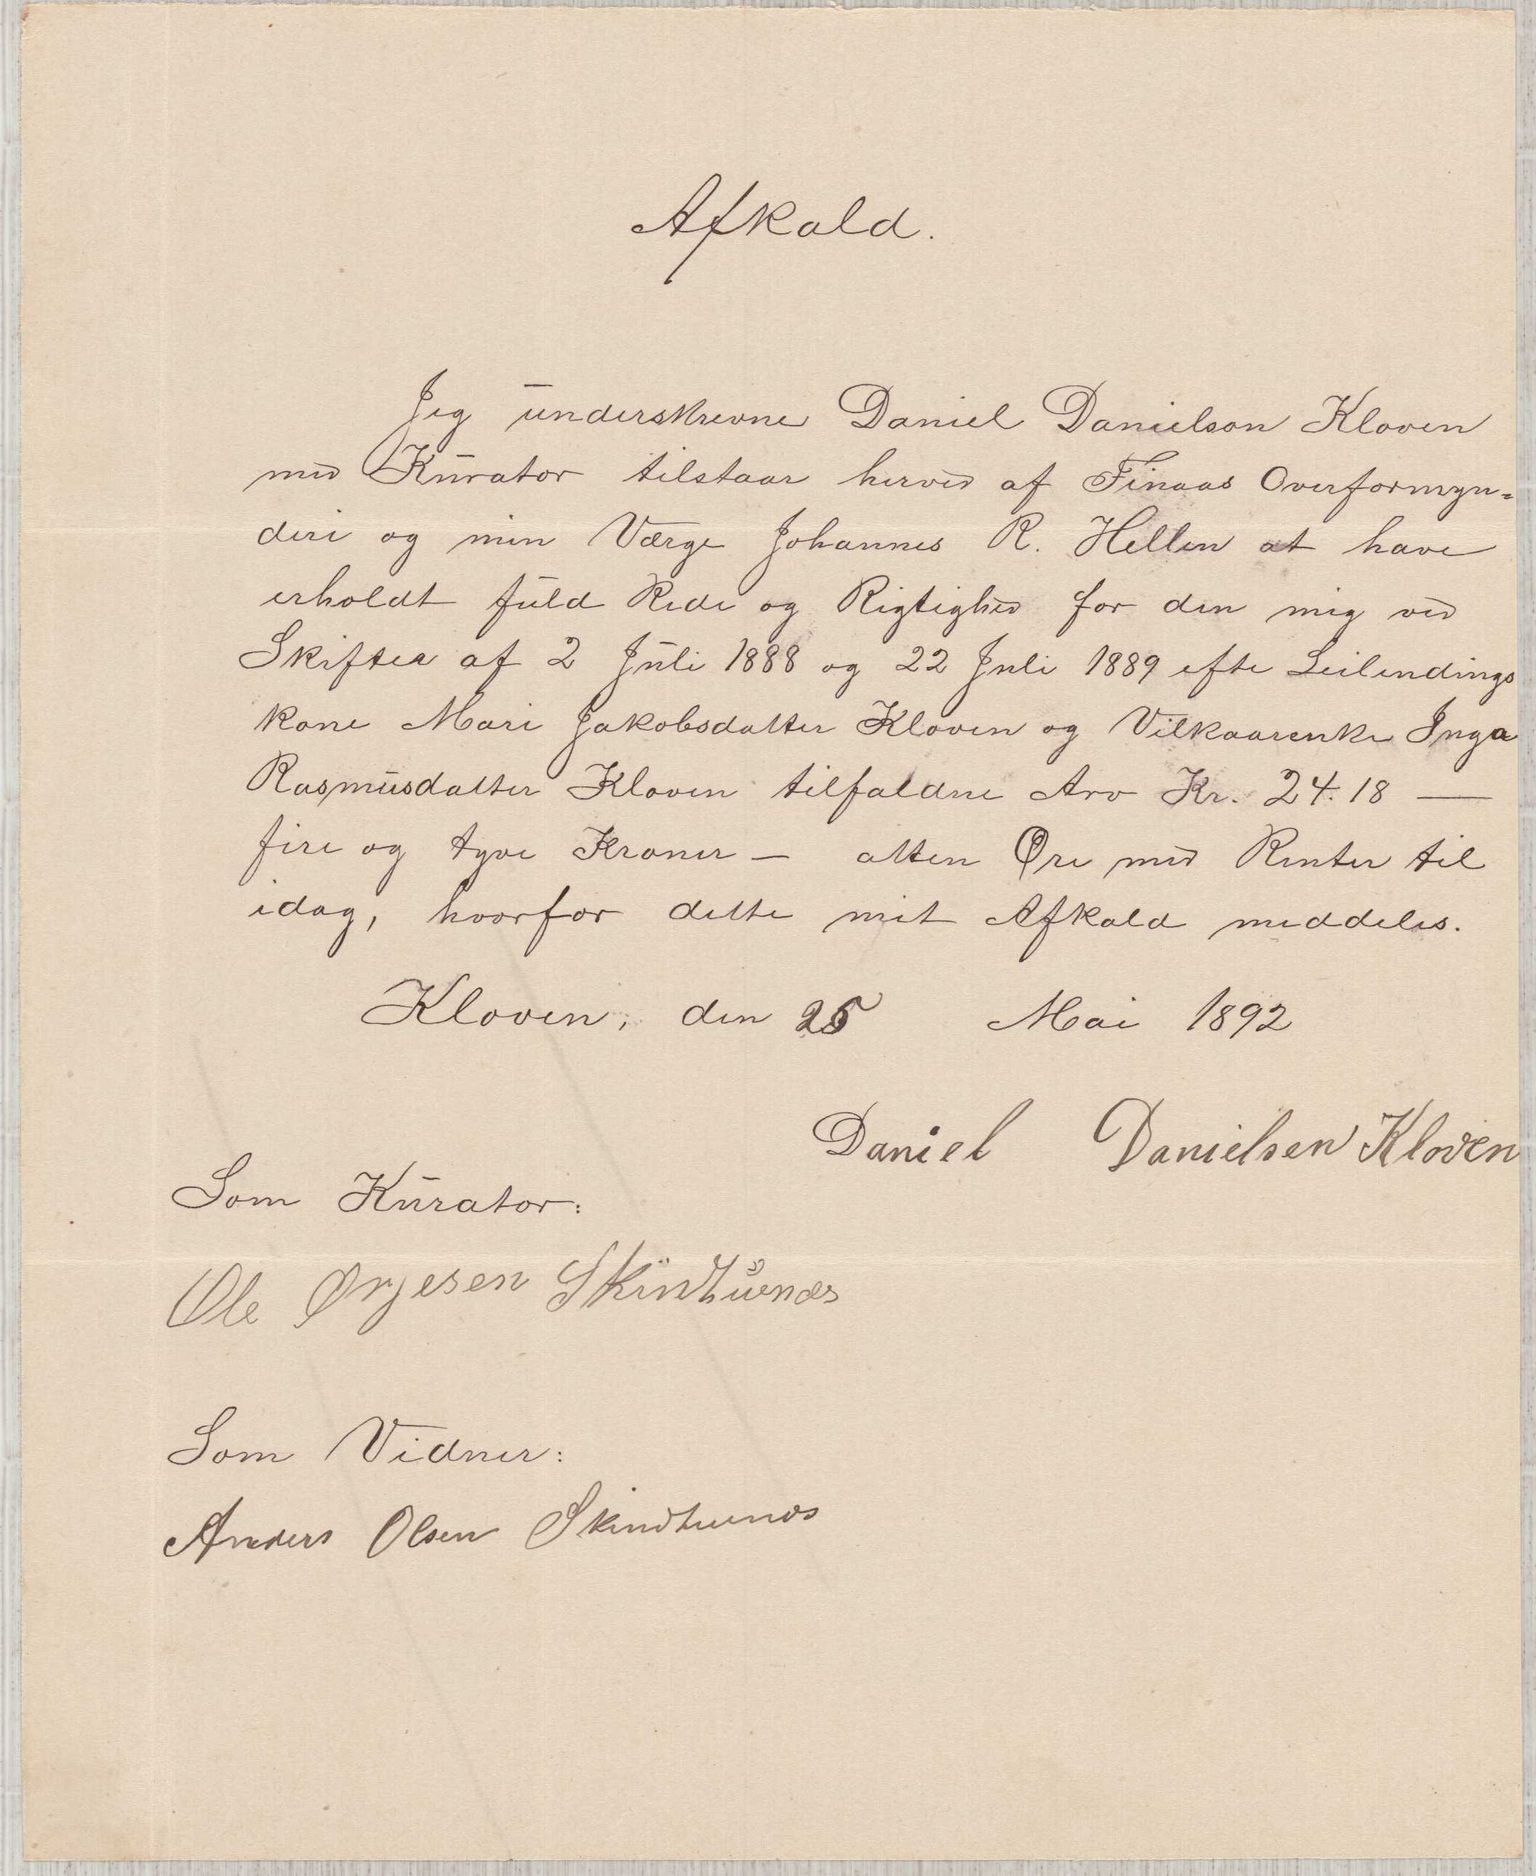 Afkald.
Jeg underskrevne Daniel Danielson Kloven
med Kurator tilstaar herved af Finaas Overformyn=
deri og min Værge Johannes R. Hellen at have
erholdt fuld Rede og Rigtighed for den mig ved
Skifter af 2 Juli 1888 og 22 Juli 1889 efte Leilendings
kone Mari Jakobsdatter Kloven og Vilkaarenke Inga
Rasmusdatter Kloven tilfaldne Arv Kr. 24.18 —
fire og tyve Kroner — atten Øre med Renter til
idag, hvorfor dette mit Afkald meddeles.
Kloven, den 25 Mai 1892
Daniel Danielsen Kloven
Som Kurator:
Ole Ørjesen
Som Vidner:
Anders Olsen